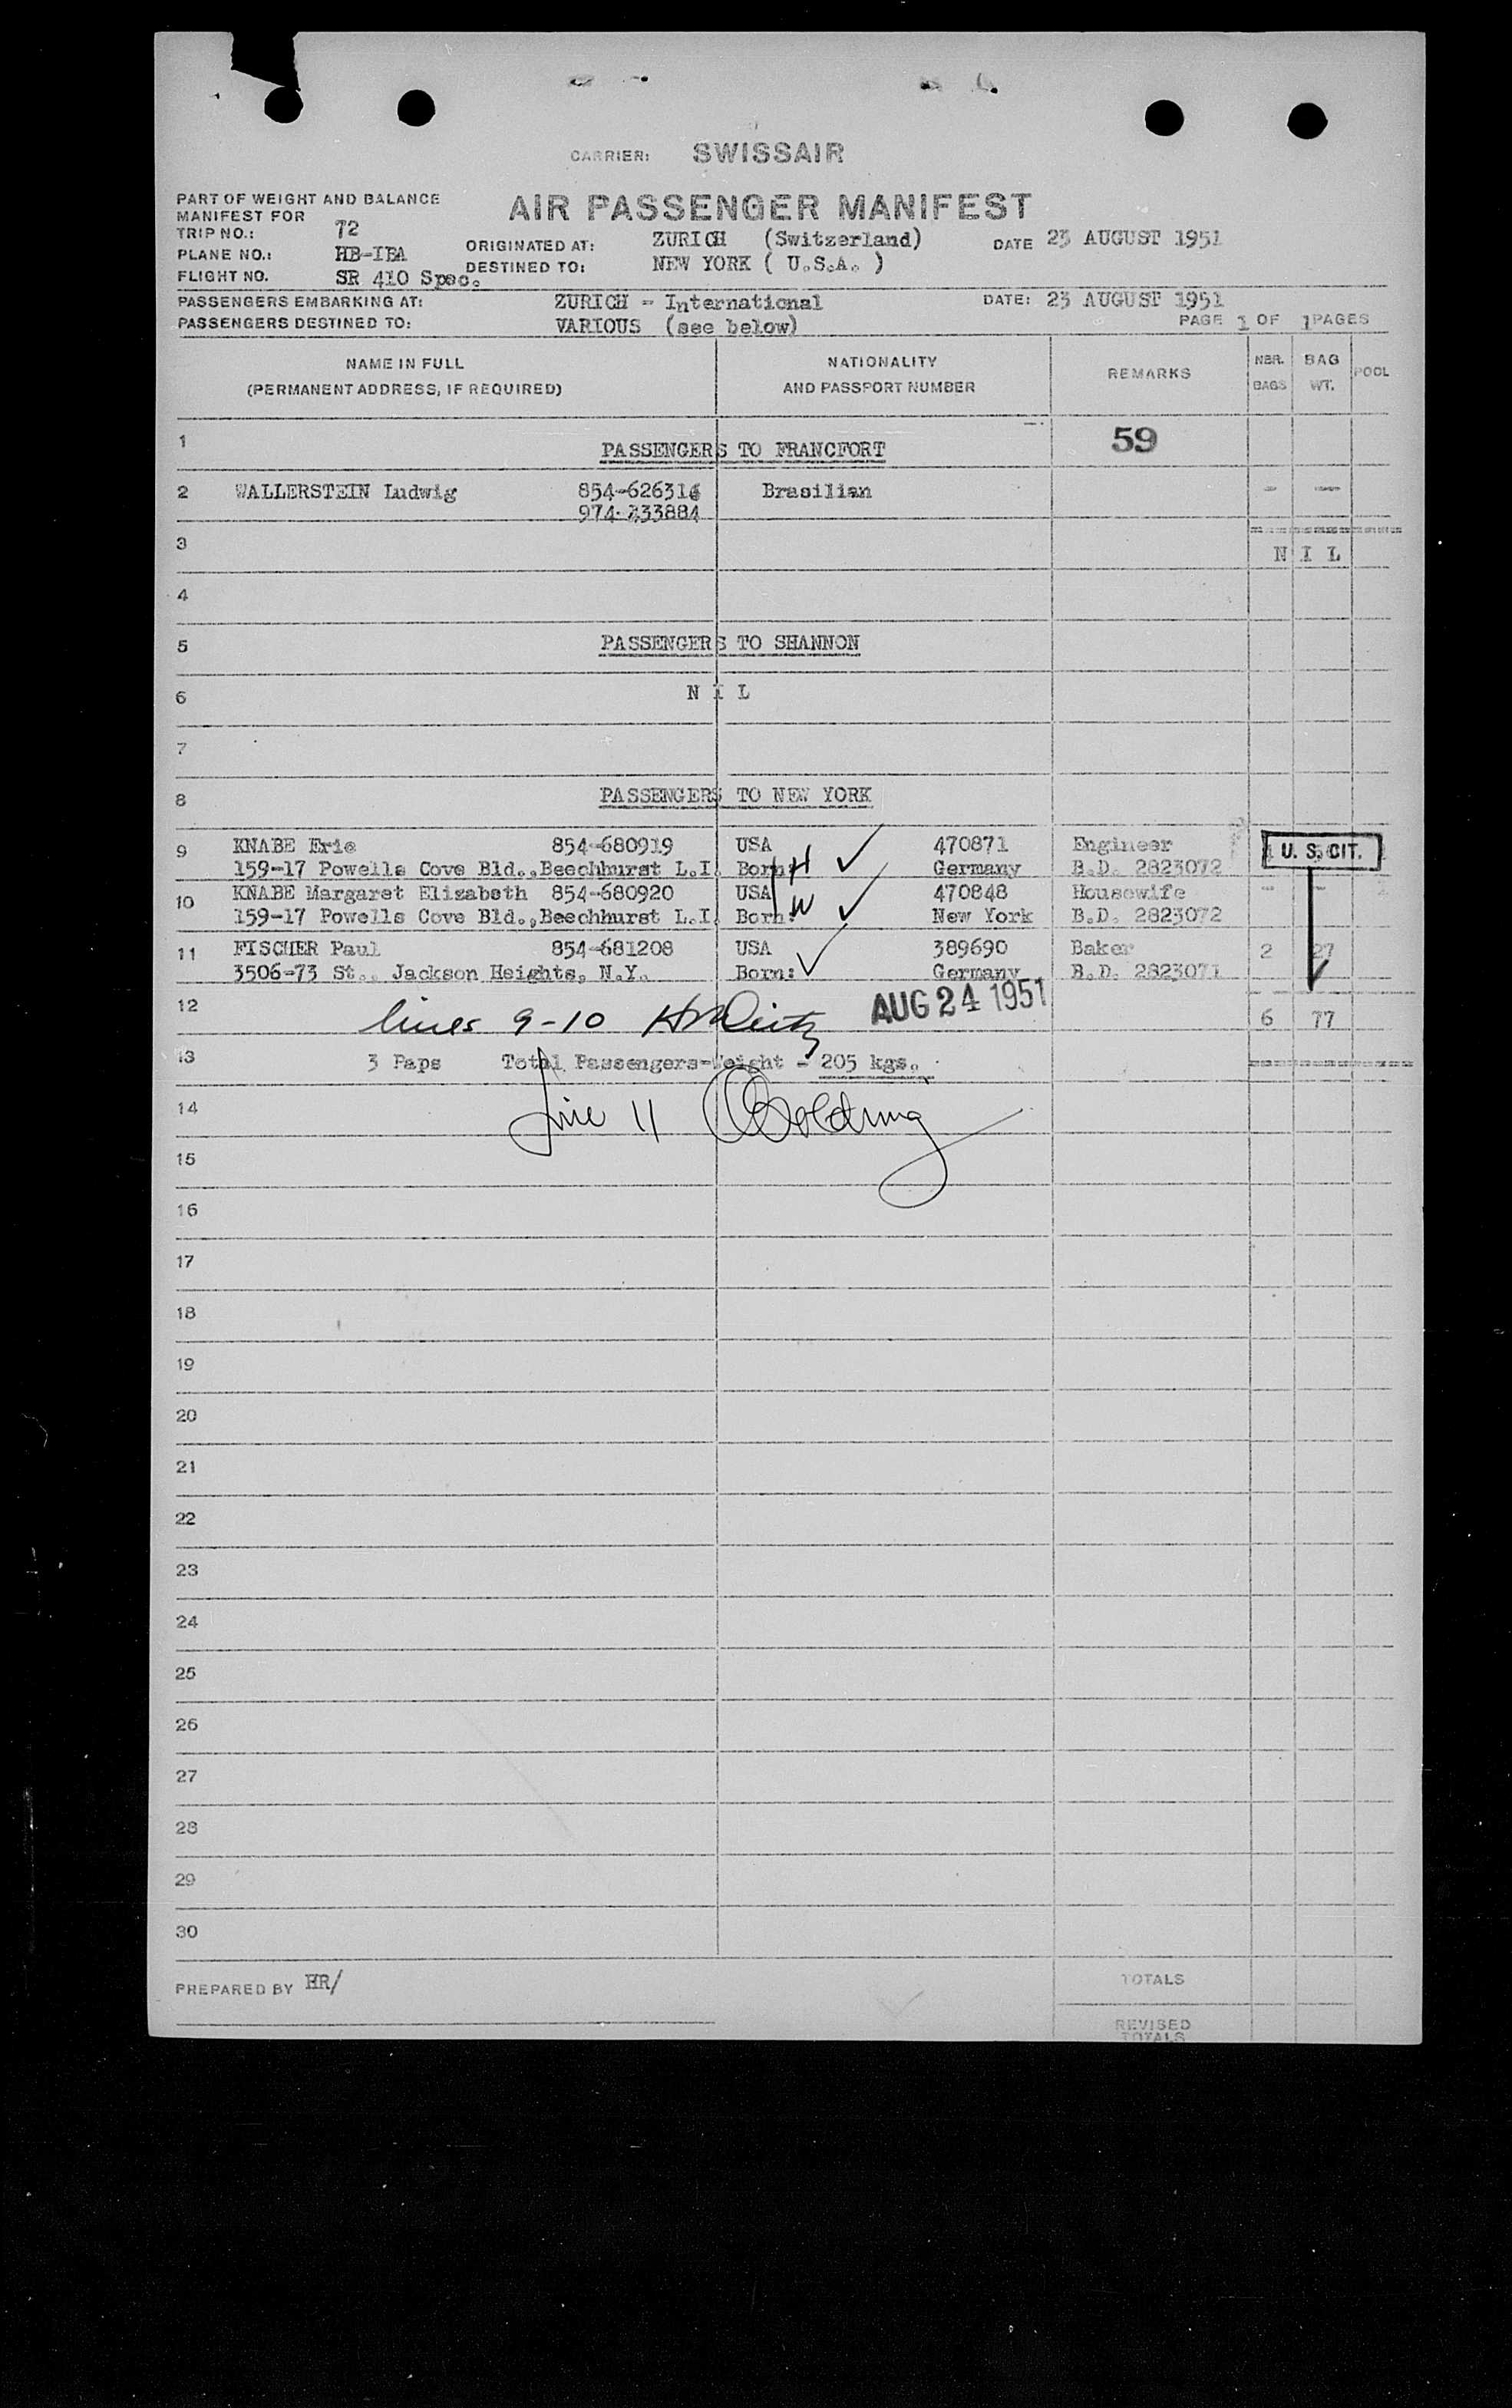 CARRIER: SWISSAIR
PART OF WEIGHT AND BALANCE
MANIFEST FOR
AIR PASSENGER MANIFEST
TRIP NO.: 72
PLANE NO.: HB-IBA
FLIGHT NO. SR 410 Spec.
ORIGINATED AT: ZURICH (Switzerland) DATE 23 AUGUST 1951
DESTINED TO: NEW YORK ( U.S.A. )
PASSENGERS EMBARKING AT: ZURICH - International DATE: 23 AUGUST 1951
PASSENGERS DESTINED TO: VARIOUS (see below) PAGE 1 OF 1 PAGES
NAME IN FULL NATIONALITY REMARKS NBR. BAG POOL
(PERMANENT ADDRESS, IF REQUIRED) AND PASSPORT NUMBER BAGS WT.
1 PASSENGERS TO FRANCFORT 59
2 WALLERSTEIN Ludwig 854-626316 Brasilian - -
974-233884
3 N I L
4
5 PASSENGERS TO SHANNON
6 N I L
7
8 PASSENGERS TO NEW YORK
9 KNABE Eric 854-680919 USA H ✓ 470871 Engineer U. S. CIT.
159-17 Powells Cove Bld., Beechhurst L.I. Born: Germany B.D. 2823072
10 KNABE Margaret Elizabeth 854-680920 USA W ✓ 470848 Housewife - -
159-17 Powells Cove Bld., Beechhurst L.I. Born: New York B.D. 2823072
11 FISCHER Paul 854-681208 USA ✓ 389690 Baker 2 27
3506-73 St., Jackson Heights, N.Y. Born: Germany B.D. 2823071
12 lines 9-10 AUG 24 1951 6 77
13 3 Paps Total Passengers-Weight - 205 kgs.
14 Line 11 Goldring
15
16
17
18
19
20
21
22
23
24
25
26
27
28
29
30
PREPARED BY HR/ TOTALS
REVISED
TOTALS